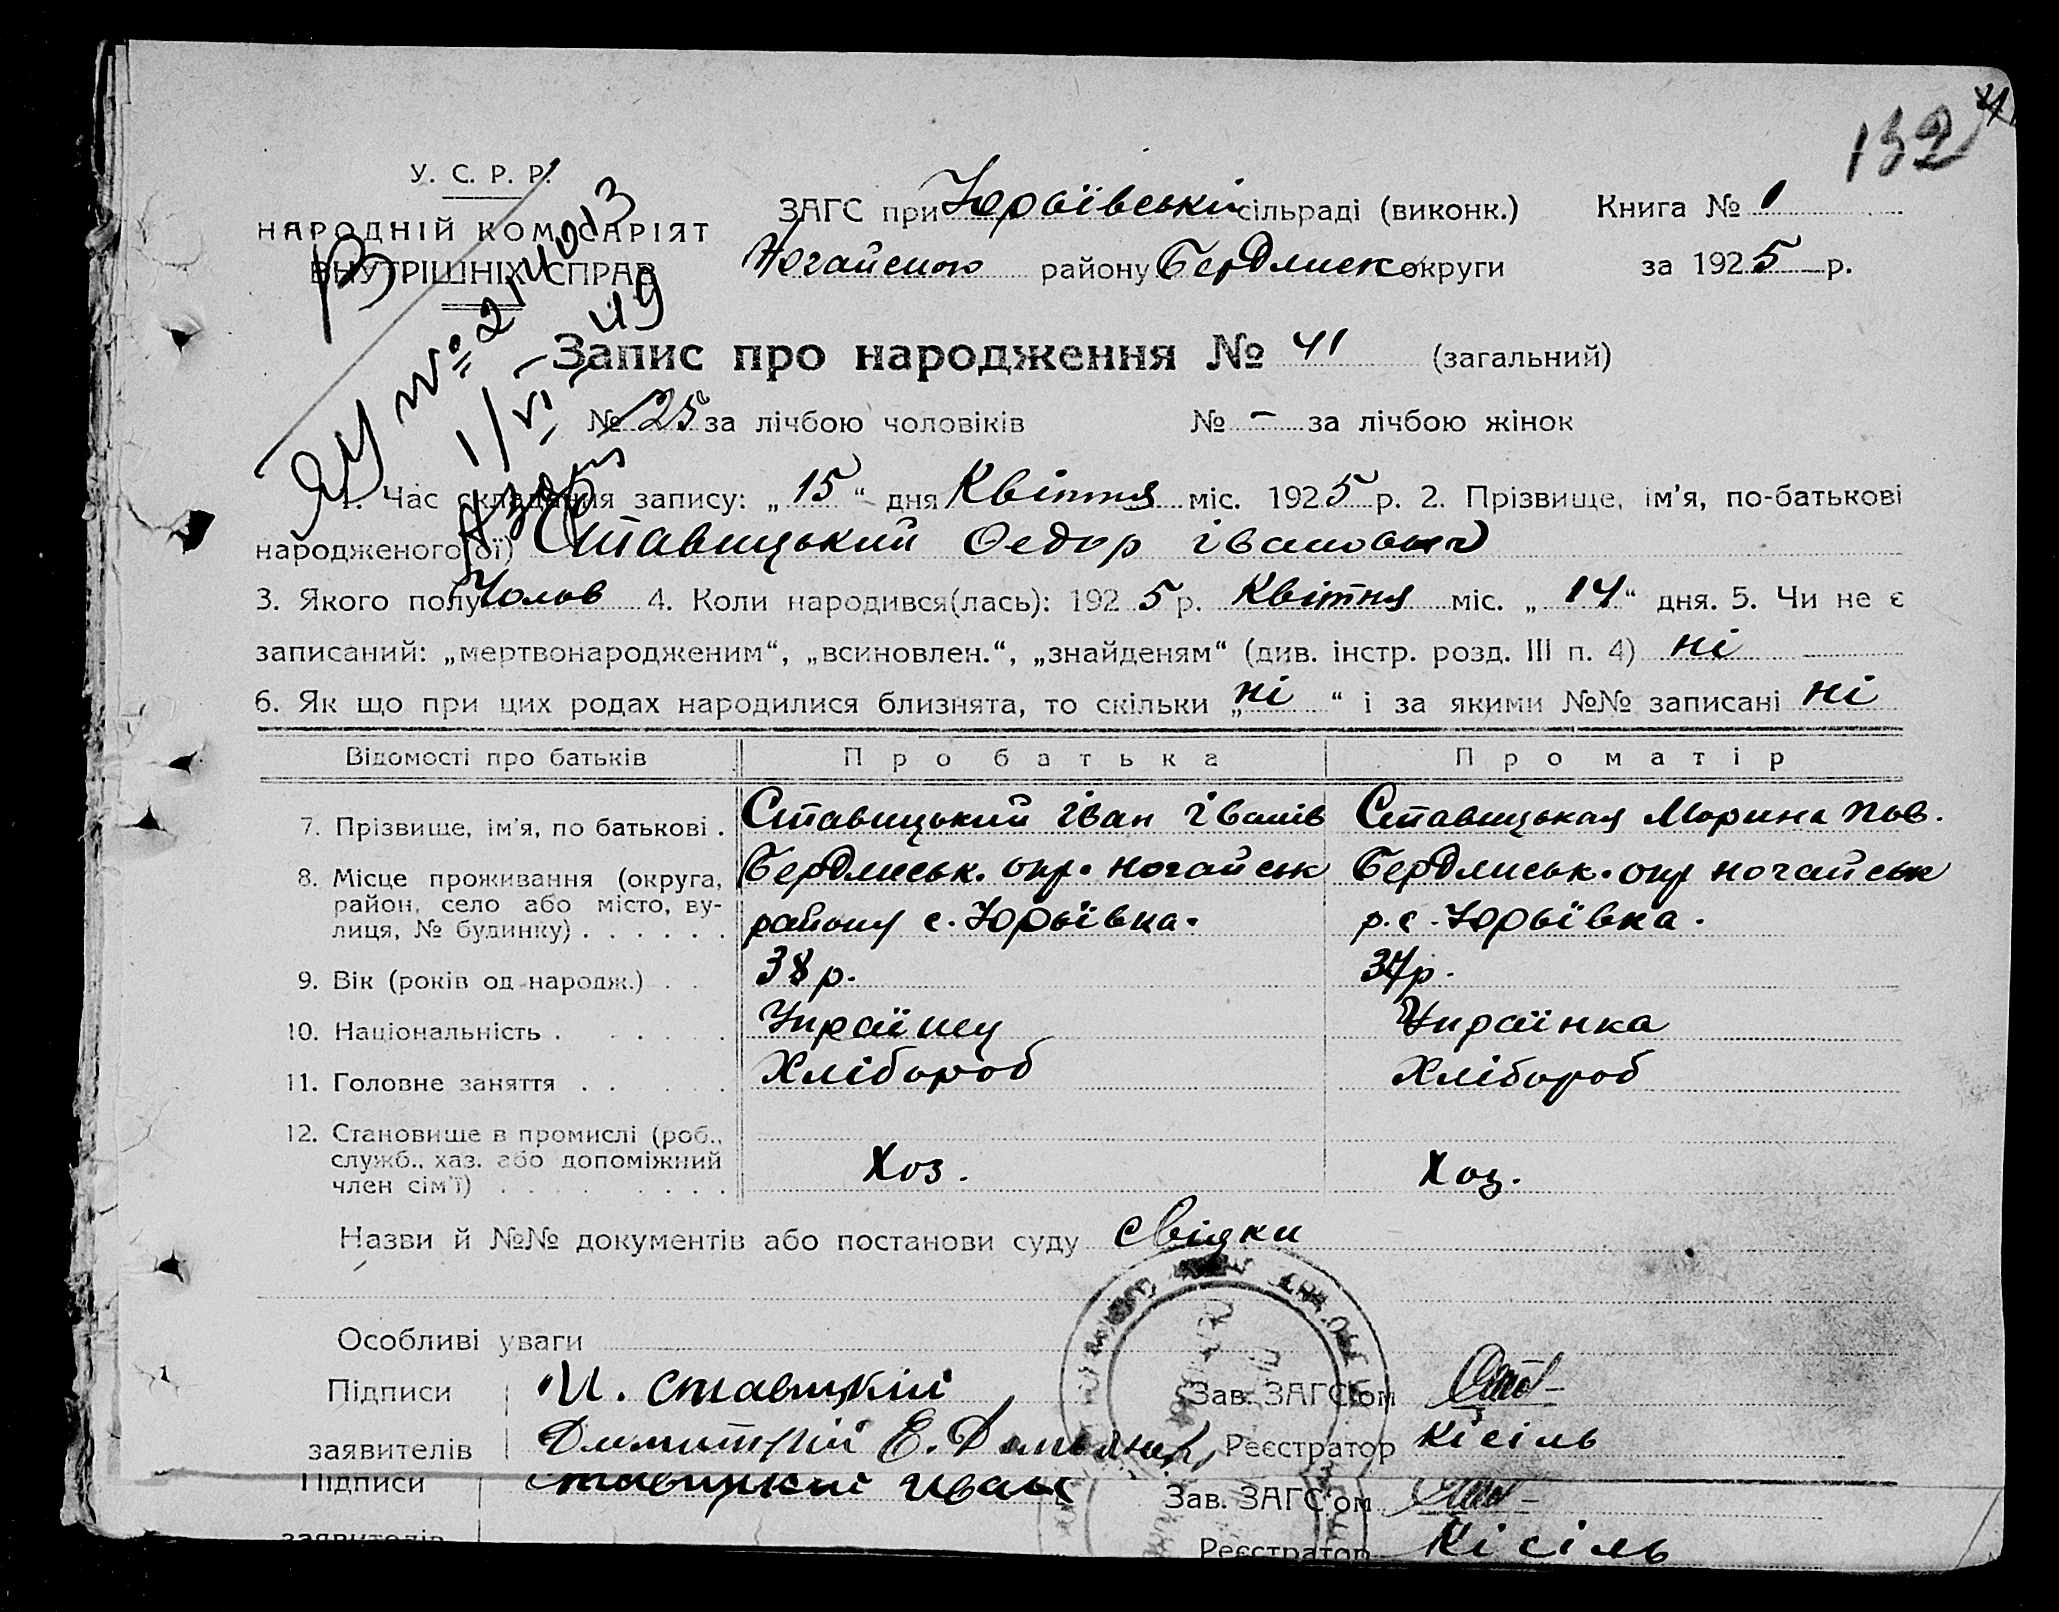 132
У. С. Р. Р.
НАРОДНІЙ КОМІСАРІЯТ
ВНУТРІШНІХ СПРАВ
ЗАГС при Юрьївські сільраді (виконк.) Книга № 1
Ногайською району Бердянсько округи за 1925 р.
Запис про народження № 41 (загальний)
№ 25 за лічбою чоловіків № – за лічбою жінок
1. Час складання запису: „15“ дня Квітня міс. 1925 р. 2. Прізвище, ім’я, по-батькові
народженого(ої) Ставицький Федор Іванович
3. Якого полу Чолов 4. Коли народився(лась): 1925 р. Квітня міс. „14“ дня. 5. Чи не є
записаний: „мертвонародженим“, „всиновлен.“, „знайденям“ (див. інстр. розд. III п. 4) ні
6. Як що при цих родах народилися близнята, то скільки „ні“ і за якими №№ записані ні
Відомості про батьків Про батька Про матір
7. Прізвище, ім’я, по батькові . Ставицький Іван Іванів Ставицькая Марина Пав.
8. Місце проживання (округа, район, село або місто, вулиця, № будинку) Бердянськ. окр. Ногайськ Бердянськ. окр Ногайськ
району с. Юрьївка. р. с. Юрьївка.
9. Вік (років од народж.) 38 р. 37 р.
10. Національність . Українец Українка
11. Головне заняття Хлібороб Хлібороб
12. Становище в промислі (роб.,
служб., хаз. або допоміжний
член сім’ї) Хоз. Хоз.
Назви й №№ документів або постанови суду свідки
Особливі уваги
Підписи И. Ставицкій Зав. ЗАГС’ом
заявителів Димитрій Е. Реєстратор Кісіль
Підписи Ставицкий Иван Зав. ЗАГС’ом
заявителів Реєстратор Кісіль